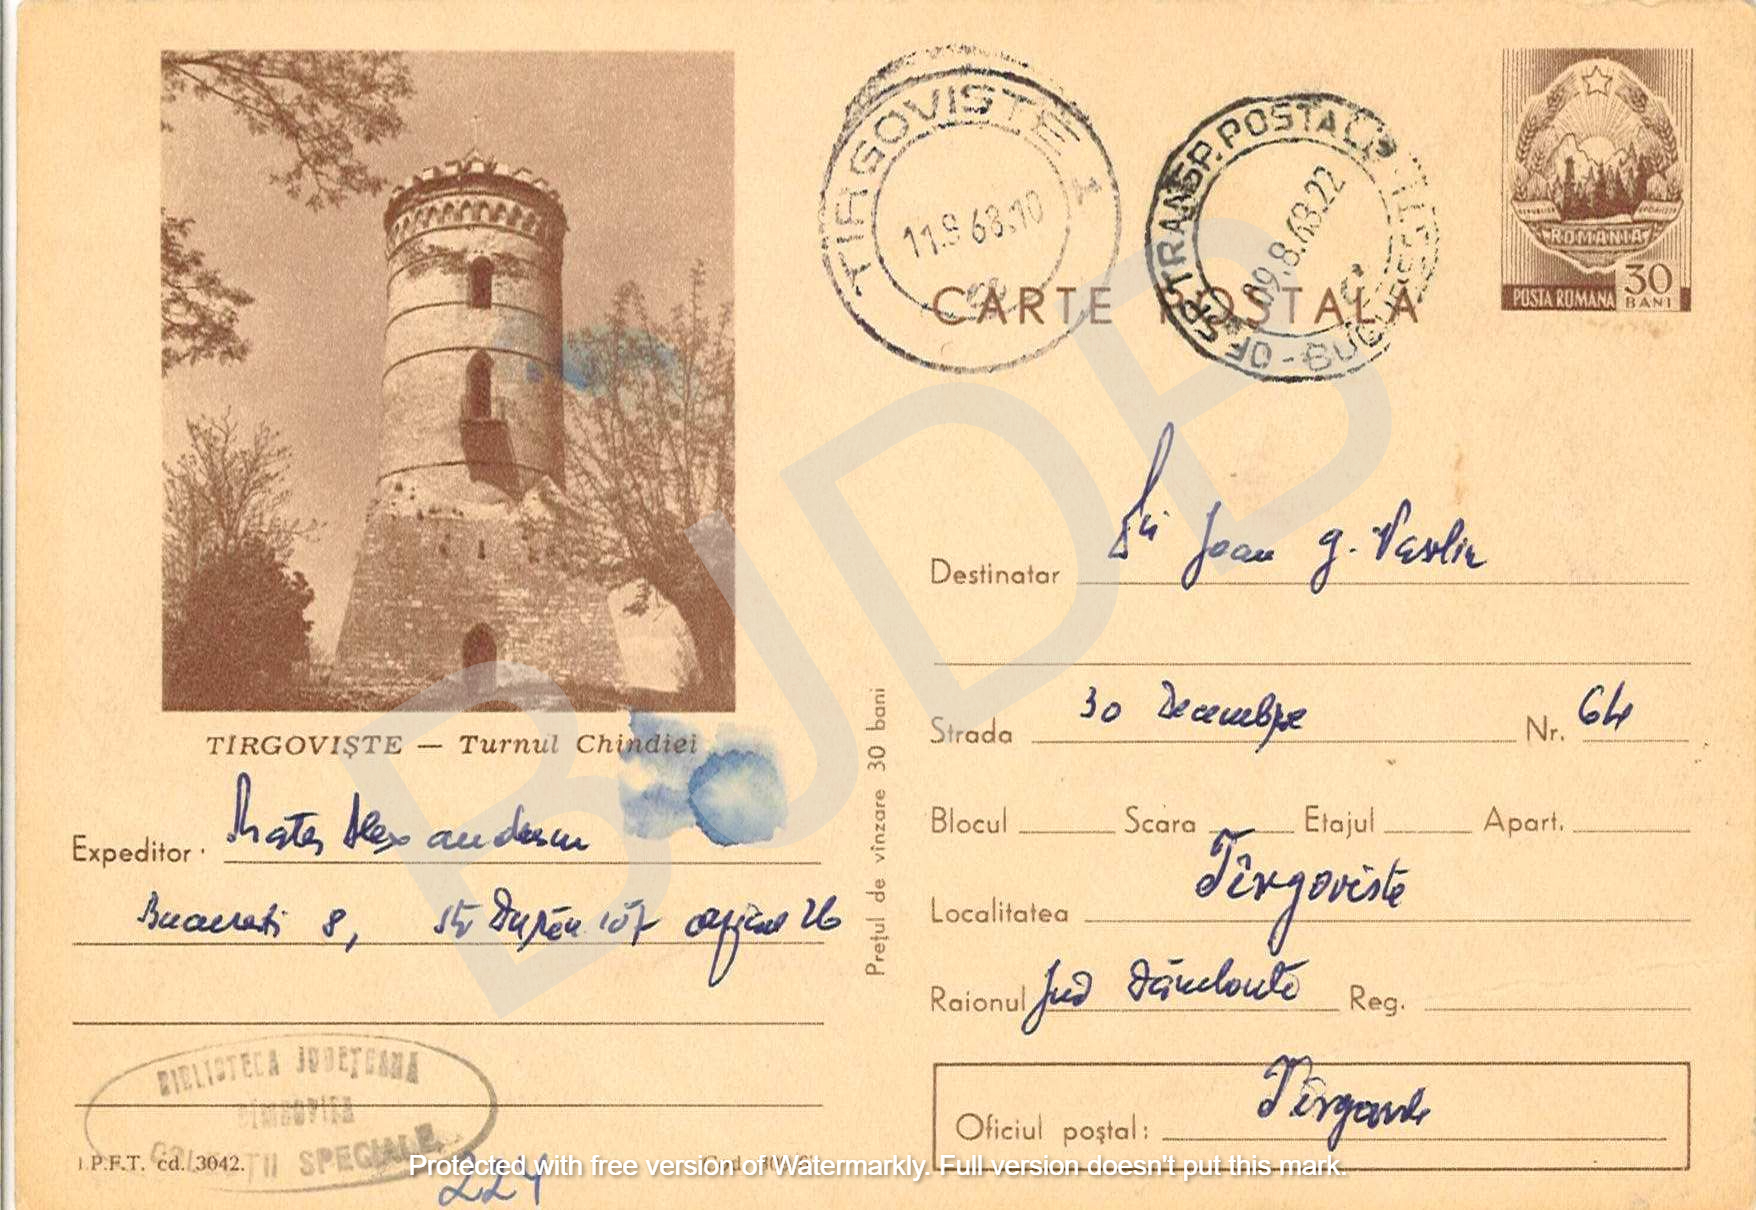 TIRGOVISTE 1
11.8 68.10
OF. SP. TRANSP. POSTAL
BUCUREȘTI
09.8.68.22
ROMANIA
POSTA ROMANA 30 BANI
CARTE POSTALA
TÎRGOVIȘTE — Turnul Chindiei
Expeditor Mateş Alexandrescu
Bucuresti 8, oficiul 26
Prețul de vînzare 30 bani
Destinatar Ioan G. Vasiliu
Strada 30 Decembrie Nr. 64
Blocul Scara Etajul Apart.
Localitatea Tîrgoviste
Raionul Jud Reg.
Oficiul poștal:
BIBLIOTECA JUDEȚEANA
DÎMBOVIȚA
COLECȚII SPECIALE
I.P.F.T. cd. 3042.
224
BJDB
Protected with free version of Watermarkly. Full version doesn't put this mark.